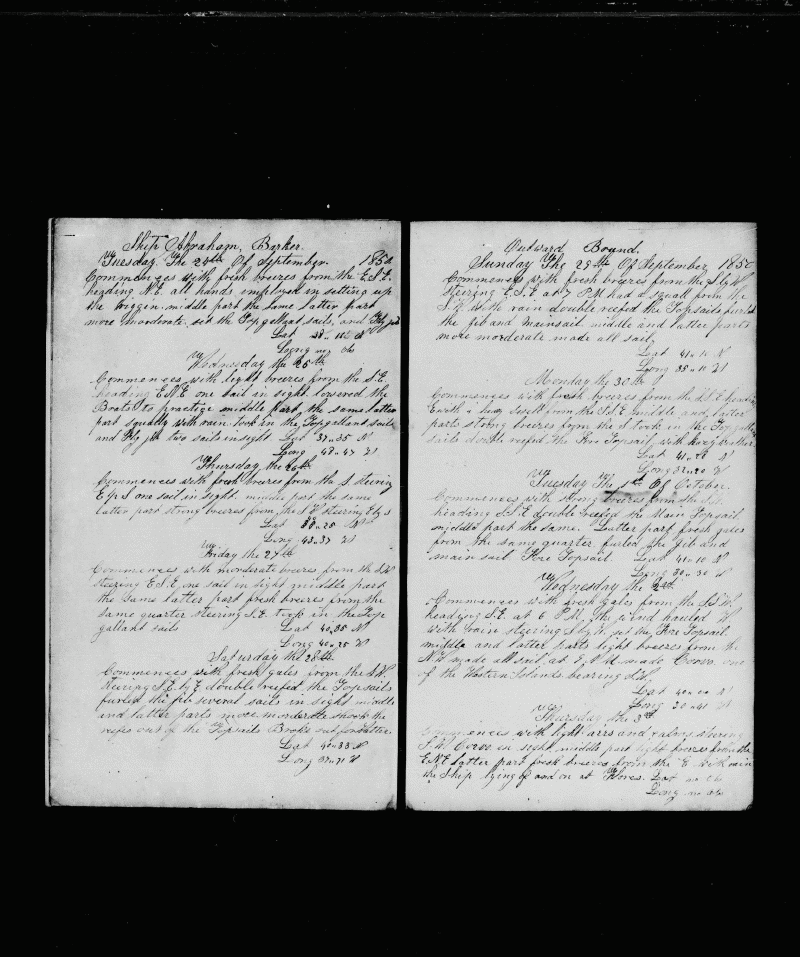 Ship Abraham, Barker.
Tuesday The 24th Of September. 1850
Commences with fresh breezes from the E.S.E.
heading N.E. all hands imployed in setting up
the riggin. middle part the same latter part
more moderate, set the Topgellant sails, and Fly jib
Lat N
Long no obs
Wednesday the 25th
Commences with light breezes from the S.E.
heading E.N.E one sail in sight. lowered the
Boats to practice middle part, the same latter
part squally with rain. took in the Topgallant sails
and Fly jib two sails in sight Lat 37..35 N
Long 48..47 W
Thursday the 26th
Commences with fresh breezes from the S steering
E by S one sail in sight. middle part the same
latter part strong breezes from the S W steering E by S
Lat 38..25 N
Long 43..37 W
Friday the 27th
Commences with morderate breezes from the S.W
steering E.S.E, one sail in sight middle part
the same latter part fresh breezes from the
same quarter steering S.E. took in the Top
gallant sails Lat 40..35 N
Long 40..25 W
Saturday the 28th
Commences with fresh gales from the S.W.
Steering S.E. by E. double reefed the Topsails
furled the jib several sails in sight middle
and latter parts more morderate shook the
reefs out of the Topsails Broke out for
Lat 40..33 N
Long 37..71 W
Outward Bound.
Sunday The 29th Of September 1850
Commences with fresh breezes from the S by W
steering E.S.E at 7 P.M had a squall from the
S.W. with rain double reefed the Topsails furled
the jib and mainsail middle and latter parts
more morderate made all sail,
Lat 41..11 N
Long 35..10 W
Monday the 30th
Commences with fresh breezes from the S.S.E heading
E with a heavy swell from the S.S.E middle and latter
parts strong breezes from the S took in the Topgallant
sails double reefed the Fore Topsail, with heavy weather
Lat 41..28 N
Long 32..20 W
Tuesday The 1st Of October.
Commences with strong breezes from the S.
heading S.S.E double reefed the Main Topsail
middle part the same. Latter part fresh gales
from the same quarter furled the jib and
main sail Fore Topsail. Lat 41..10 N
Long 30..30 W
Wednesday the 2nd
Commences with fresh gales from the S.S.W.
heading S.E. at 6 P.M. the wind hauled W
with rain steering S by W. set the Fore Topsail.
middle and latter parts light breezes from the
N.W. made all sail at 9, A M made Corvo. one
of the Western Islands bearing S.W.
Lat 40..00 N
Long 30..41 W
Thursday the 3rd
Commences with light airs and calms steering
S.W. Corvo in sight, middle part light breezes from the
E.N.E latter part fresh breezes from the E with rain
the Ship lying off and on at Flores. Lat no obs
Long no obs